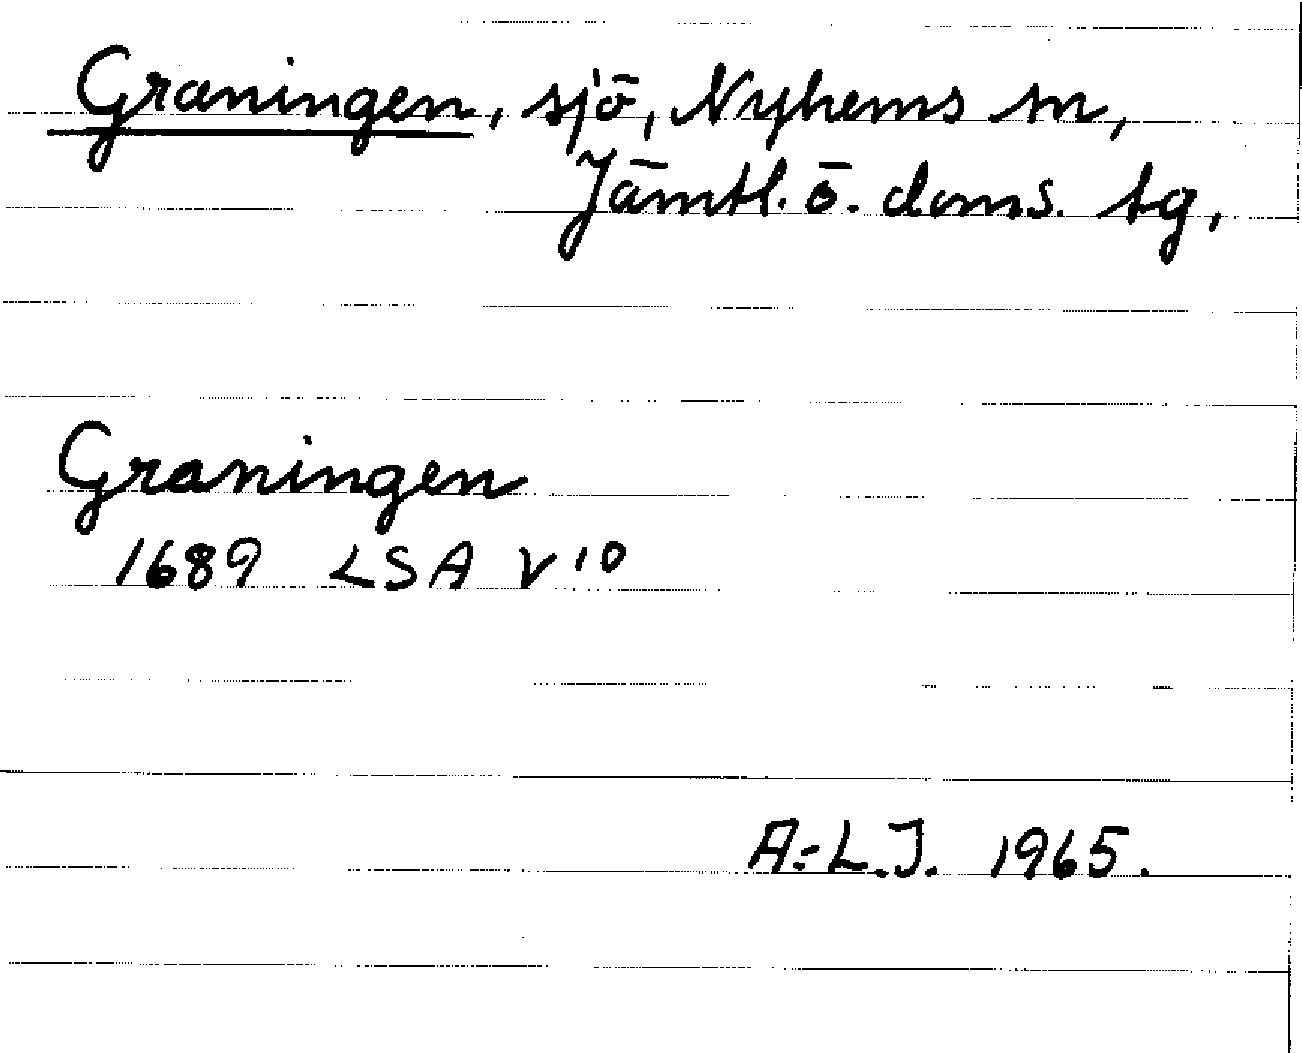 Graningen, sjö, Nyhems sn,
Jämtl. ö. doms. tg,
Graningen
1689 LSA V 10
A.-L.J. 1965.